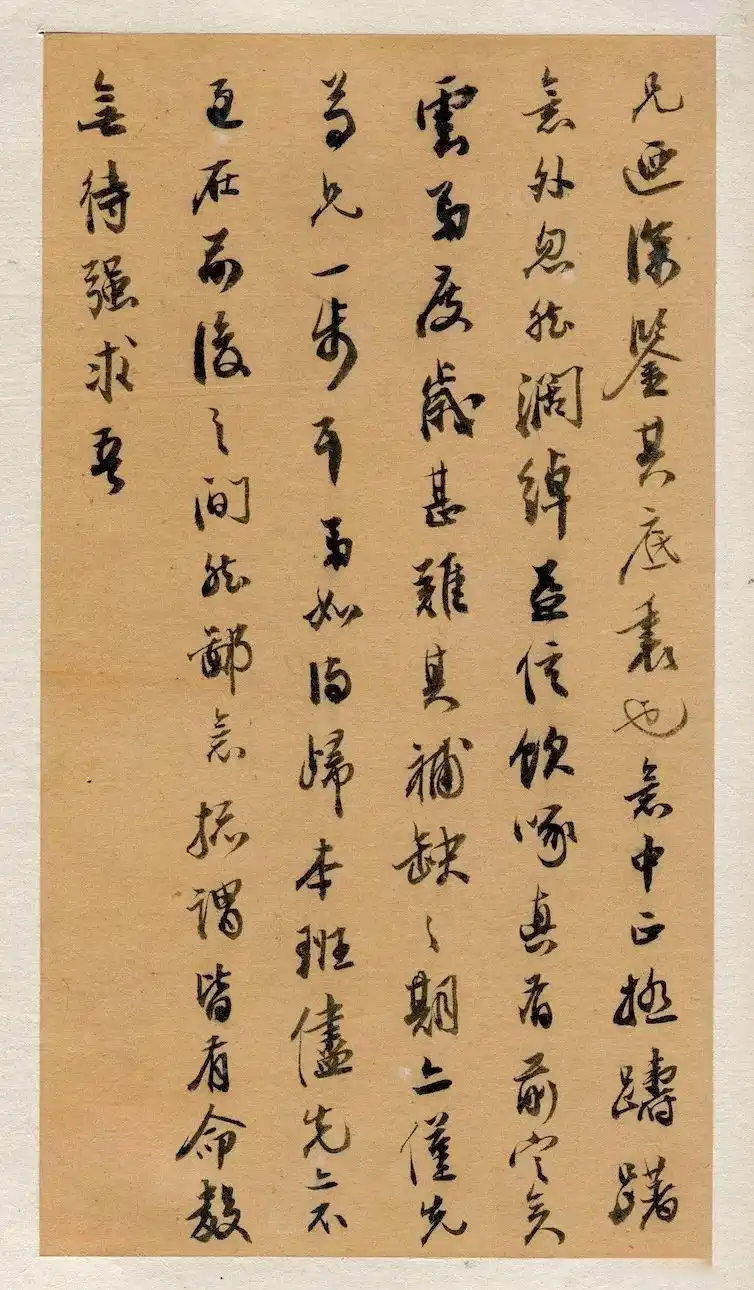 兄迺深鑒其底裏也意中正極躊躇
意外忽然濶綽益信飲啄真有前定矣
雲度歲甚難其補缺之期亦僅先
兄一步耳如得歸本班儘先亦不
過在前後之間然鄙意摠謂皆有命數
無待强求吾